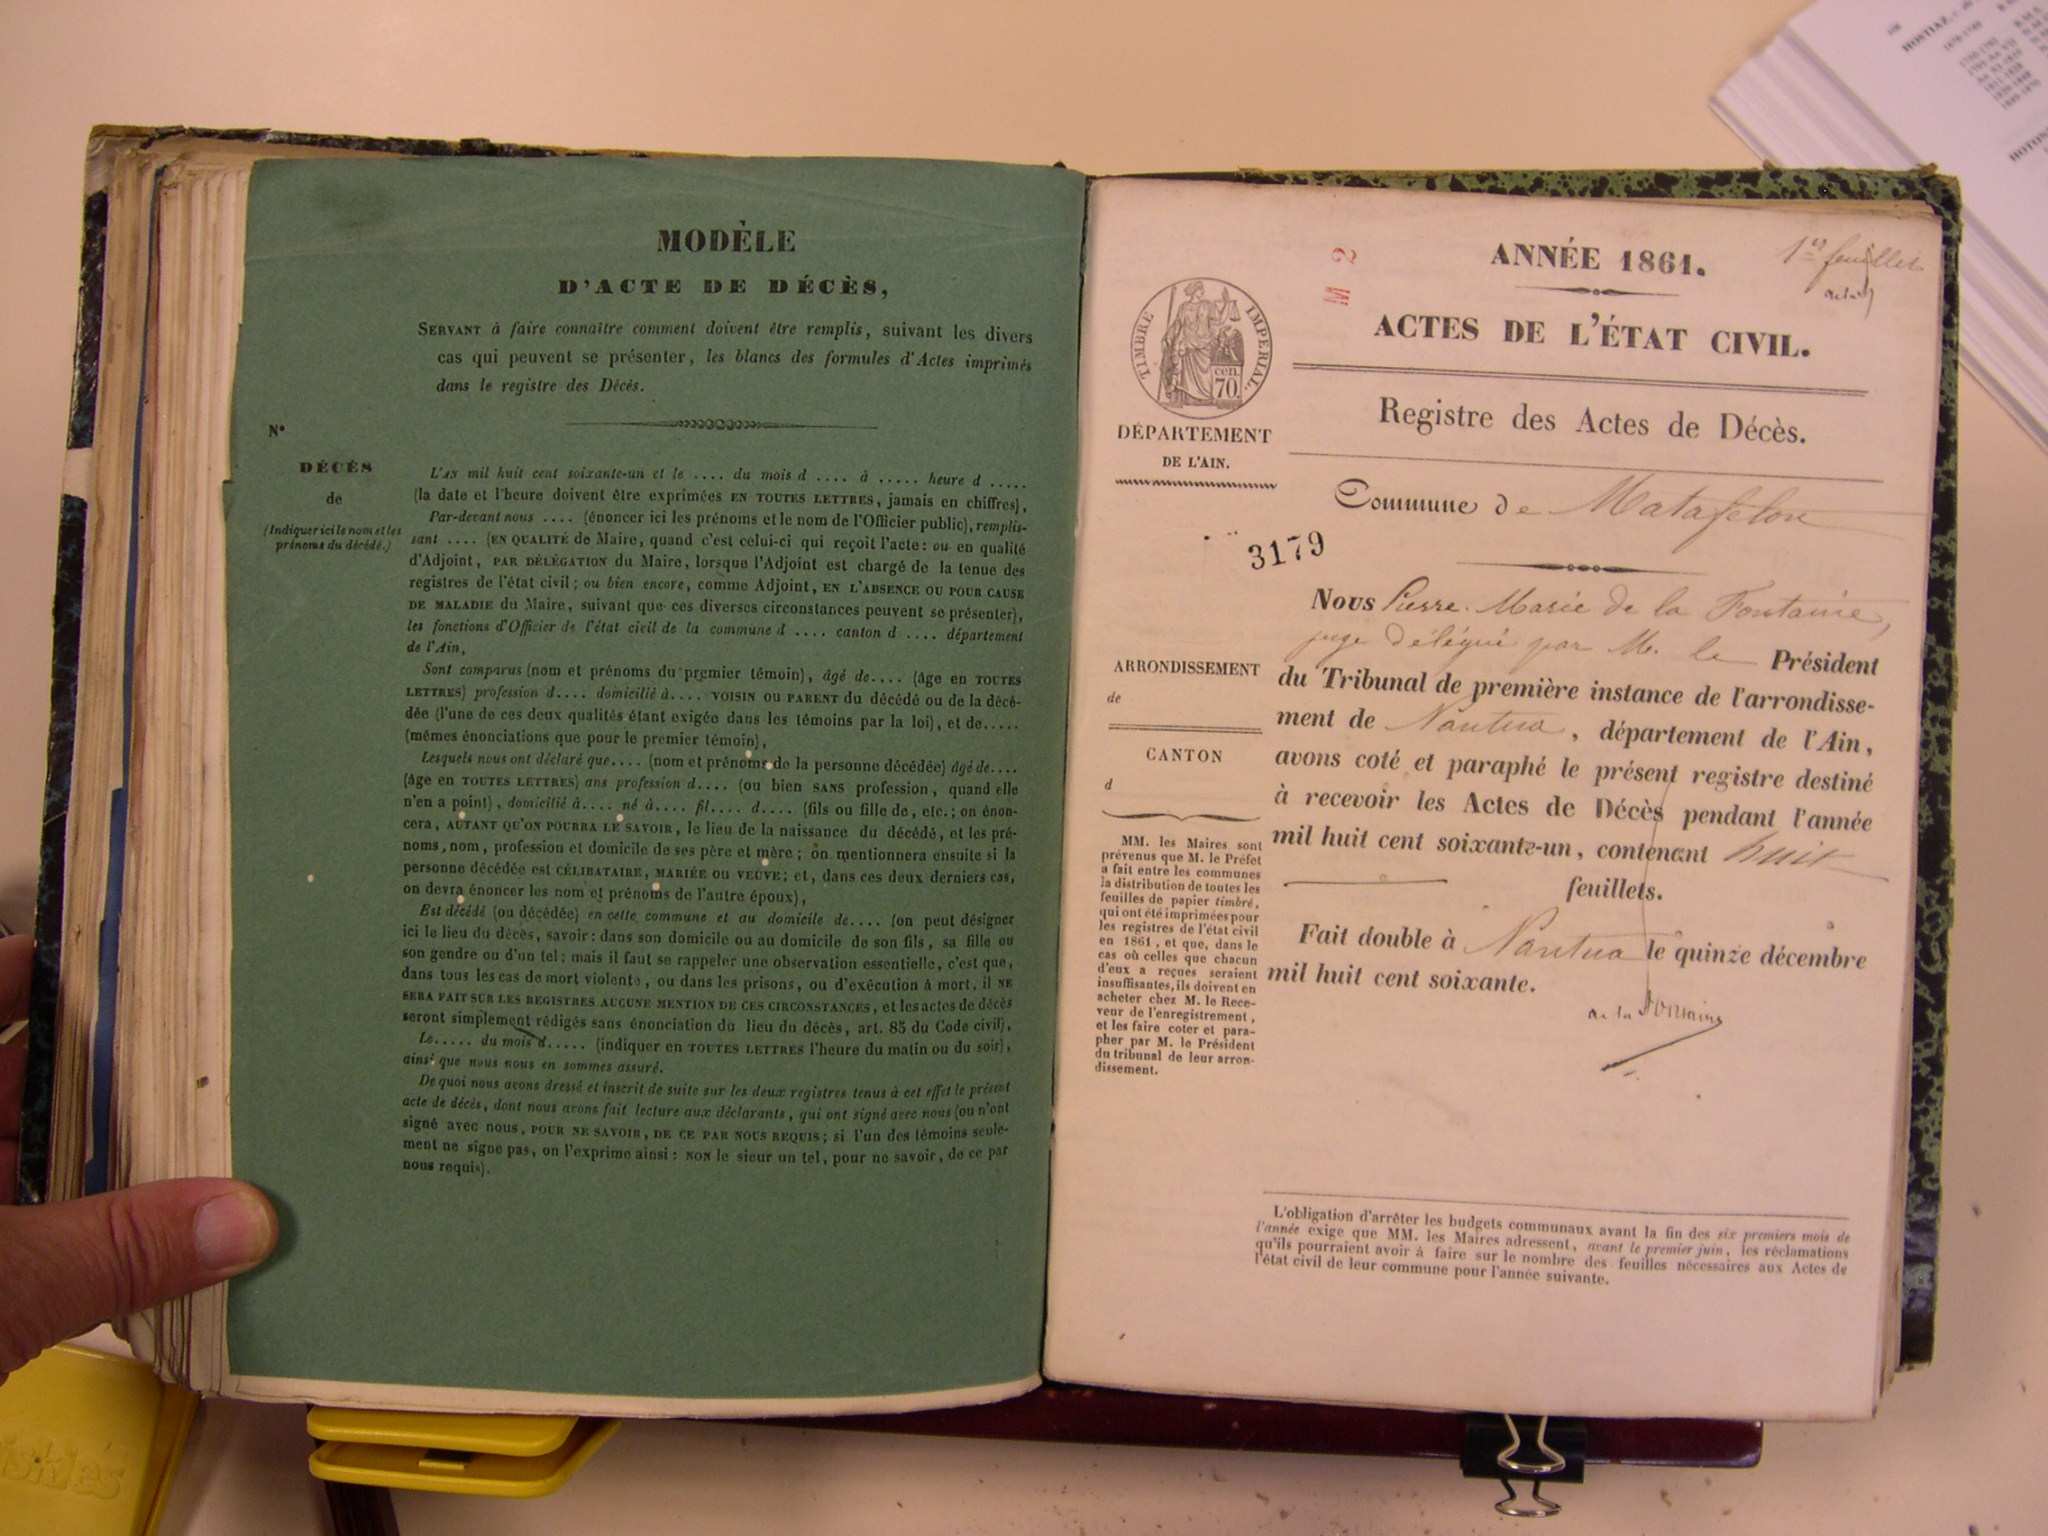 MODÈLE
D'ACTE DE DÉCÈS,
SERVANT à faire connaître comment doivent être remplis, suivant les divers
cas qui peuvent se présenter, les blancs des formules d'Actes imprimés
dans le registre des Décès.
N°
DÉCÈS
de
(Indiquer ici le nom et les
prénoms du décédé.)
L'AN mil huit cent soixante-un et le .... du mois d .... à ..... heure d .....
(la date et l'heure doivent être exprimées EN TOUTES LETTRES, jamais en chiffres),
Par-devant nous .... (énoncer ici les prénoms et le nom de l'Officier public), remplis-
sant .... (EN QUALITÉ de Maire, quand c'est celui-ci qui reçoit l'acte: ou en qualité
d'Adjoint, PAR DÉLÉGATION du Maire, lorsque l'Adjoint est chargé de la tenue des
registres de l'état civil; ou bien encore, comme Adjoint, EN L'ABSENCE OU POUR CAUSE
DE MALADIE du Maire, suivant que ces diverses circonstances peuvent se présenter),
les fonctions d'Officier de l'état civil de la commune d .... canton d .... département
de l'Ain,
Sont comparus (nom et prénoms du premier témoin), âgé de.... (âge en TOUTES
LETTRES) profession d.... domicilié à.... VOISIN OU PARENT du décédé ou de la décé-
dée (l'une de ces deux qualités étant exigée dans les témoins par la loi), et de.....
(mêmes énonciations que pour le premier témoin),
Lesquels nous ont déclaré que.... (nom et prénoms de la personne décédée) âgé de....
(âge en TOUTES LETTRES) ans profession d.... (ou bien SANS profession, quand elle
n'en a point), domicilié à.... né à.... fil.... d.... (fils ou fille de, etc.; on énon-
cera, AUTANT QU'ON POURRA LE SAVOIR, le lieu de la naissance du décédé, et les pré-
noms, nom, profession et domicile de ses père et mère; on mentionnera ensuite si la
personne décédée est CÉLIBATAIRE, MARIÉE OU VEUVE; et, dans ces deux derniers cas,
on devra énoncer les nom et prénoms de l'autre époux),
Est décédé (ou décédée) en cette commune et au domicile de.... (on peut désigner
ici le lieu du décès, savoir: dans son domicile ou au domicile de son fils, sa fille ou
son gendre ou d'un tel; mais il faut se rappeler une observation essentielle, c'est que,
dans tous les cas de mort violente, ou dans les prisons, ou d'exécution à mort, il NE
SERA FAIT SUR LES REGISTRES AUCUNE MENTION DE CES CIRCONSTANCES, et les actes de décès
seront simplement rédigés sans énonciation du lieu du décès, art. 85 du Code civil),
Le..... du mois d..... (indiquer en TOUTES LETTRES l'heure du matin ou du soir),
ainsi que nous nous en sommes assuré.
De quoi nous avons dressé et inscrit de suite sur les deux registres tenus à cet effet le présent
acte de décès, dont nous avons fait lecture aux déclarants, qui ont signé avec nous (ou n'ont
signé avec nous, POUR NE SAVOIR, DE CE PAR NOUS REQUIS; si l'un des témoins seule-
ment ne signe pas, on l'exprime ainsi: NON le sieur un tel, pour ne savoir, de ce par
nous requis).
M 2
ANNÉE 1861.
1er feuillet
ACTES DE L'ÉTAT CIVIL.
TIMBRE IMPÉRIAL.
cen.
70.
Registre des Actes de Décès.
DÉPARTEMENT
DE L'AIN.
Commune de Matafelon
3179
Nous Pierre Marie de la Fontaine,
juge délégué par M. le Président
du Tribunal de première instance de l'arrondisse-
ment de Nantua, département de l'Ain,
avons coté et paraphé le présent registre destiné
à recevoir les Actes de Décès pendant l'année
mil huit cent soixante-un, contenant huit
feuillets.
Fait double à Nantua le quinze décembre
mil huit cent soixante.
de la Fontaine
ARRONDISSEMENT
de
CANTON
d
MM. les Maires sont
prévenus que M. le Préfet
a fait entre les communes
la distribution de toutes les
feuilles de papier timbré,
qui ont été imprimées pour
les registres de l'état civil
en 1861, et que, dans le
cas où celles que chacun
d'eux a reçues seraient
insuffisantes, ils doivent en
acheter chez M. le Rece-
veur de l'enregistrement,
et les faire coter et para-
pher par M. le Président
du tribunal de leur arron-
dissement.
L'obligation d'arrêter les budgets communaux avant la fin des six premiers mois de
l'année exige que MM. les Maires adressent, avant le premier juin, les réclamations
qu'ils pourraient avoir à faire sur le nombre des feuilles nécessaires aux Actes de
l'état civil de leur commune pour l'année suivante.